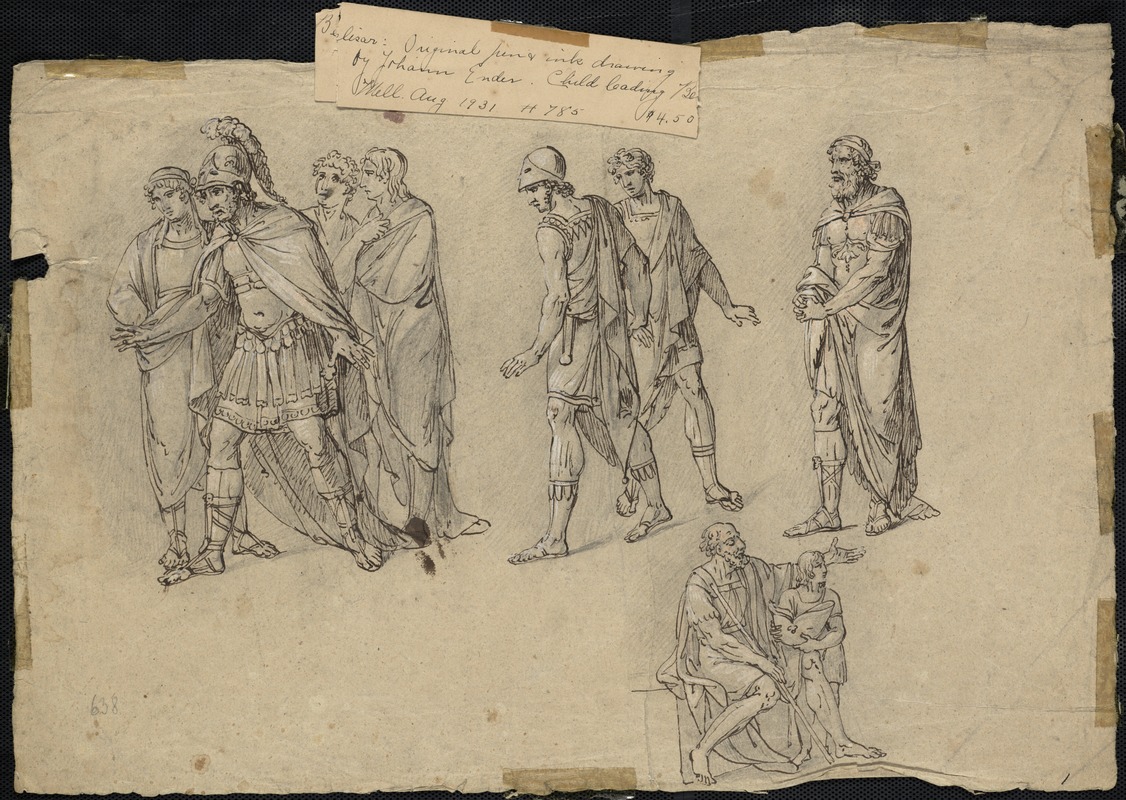 Belisar: Original pen & ink drawing
by Johann Ender. Child leading Be
Mell. Aug 1931 # 785 $4.50
638